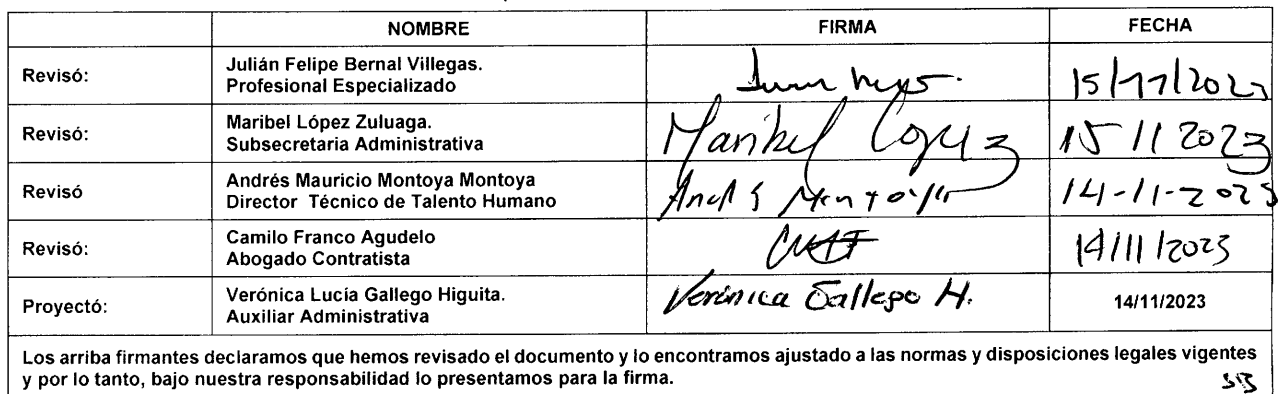 NOMBRE FIRMA FECHA
Revisó: Julián Felipe Bernal Villegas.
Profesional Especializado
15/11/2023
Revisó: Maribel López Zuluaga.
Subsecretaria Administrativa
Maribel Lopez 15 11 2023
Revisó Andrés Mauricio Montoya Montoya
Director Técnico de Talento Humano
Andrés Montoya 14-11-2023
Revisó: Camilo Franco Agudelo
Abogado Contratista
14/11/2023
Proyectó: Verónica Lucía Gallego Higuita.
Auxiliar Administrativa
Verónica Gallego H. 14/11/2023
Los arriba firmantes declaramos que hemos revisado el documento y lo encontramos ajustado a las normas y disposiciones legales vigentes
y por lo tanto, bajo nuestra responsabilidad lo presentamos para la firma.